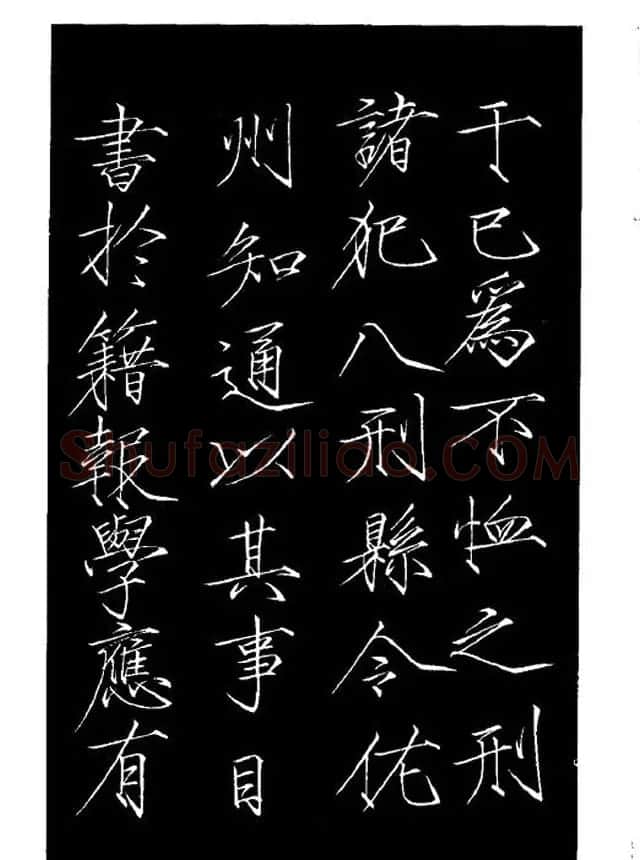 于已為不恤之刑
諸犯八刑縣令佐
州知通以其事目
書於籍報學應有
Shufaziliao.COM